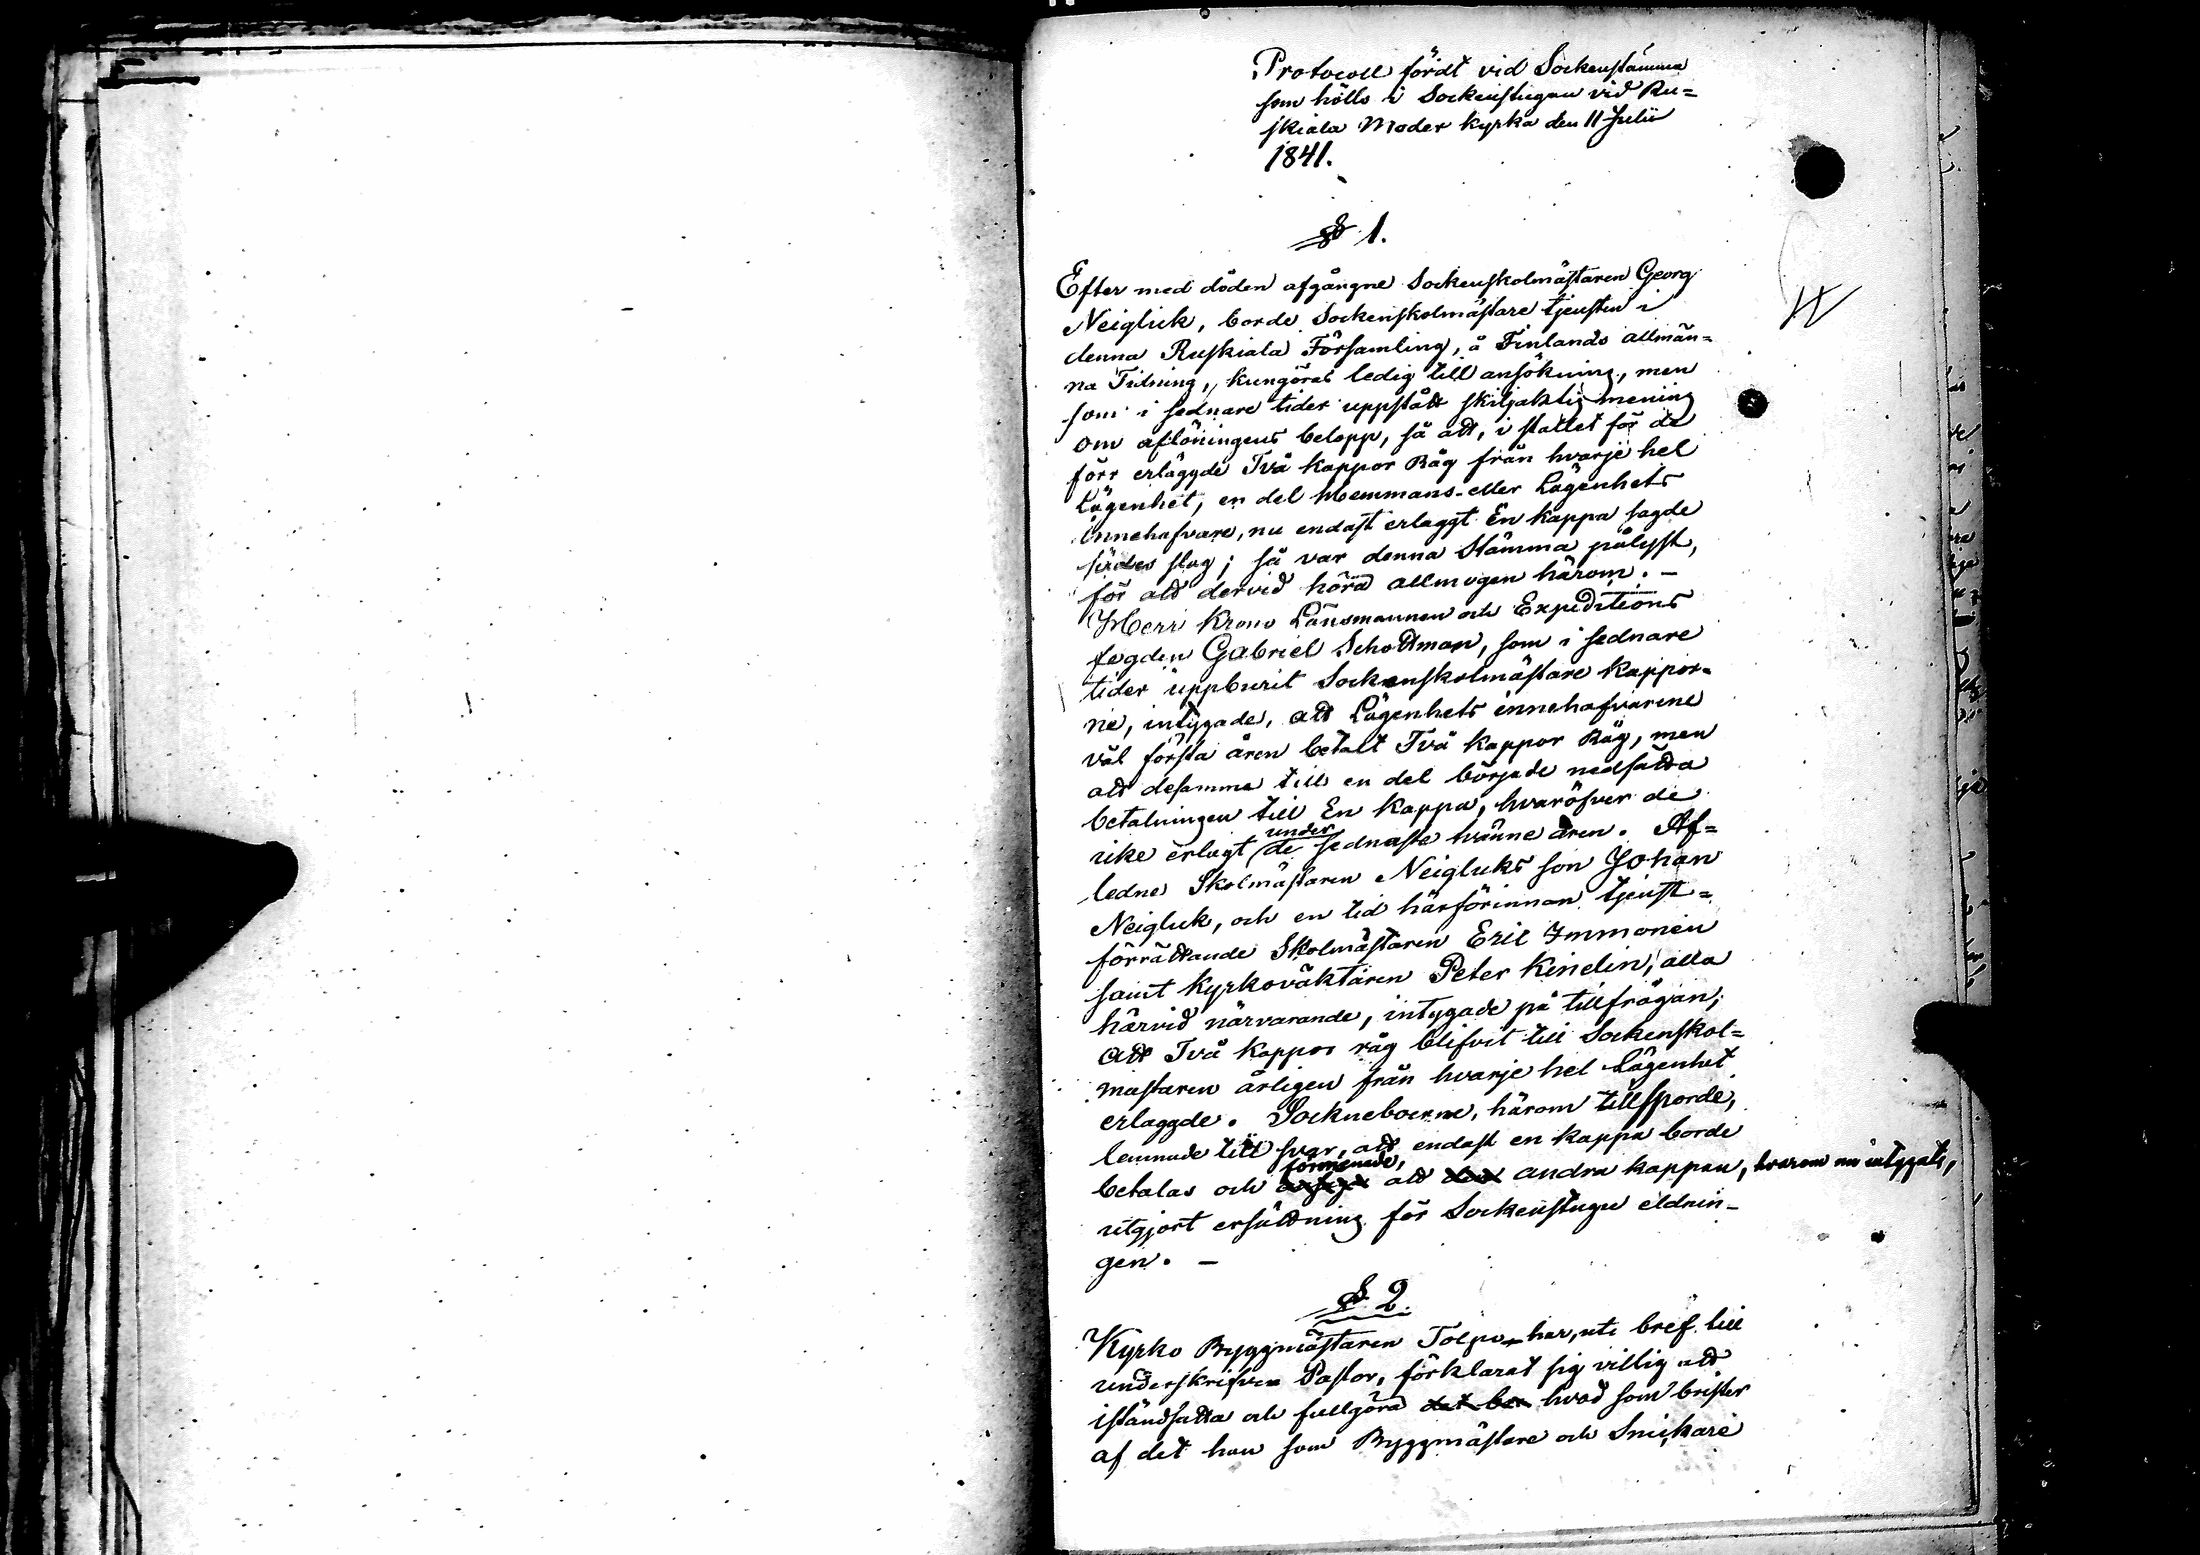 Protocoll fördt vid Sockenstämma
som hölls i Sockenstugan vid Ru=
skiala Moder kyrka den 11 Julii
1841.
§ 1.
Efter med döden afgångne Sockenskolmästaren Georg
Neigluk, borde Sockenskolmästare tjensten i
denna Ruskiala Församling, å Finlands allmän=
na Tidning, kungöras ledig till ansökning, men
som i sednare tider uppstått skiljaktig mening
om aflöningens belopp, så att, i stället för de
förr erlagde Två kappor Råg från hvarje hel
Lägenhet, en del Hemmans- eller Lägenhets
innehafvare, nu endast erlaggt En kappa sagde
sädes slag; så var denna Stämma pålyst,
för att dervid höra allmogen härom. –
Herr Krono Länsmannen och Expeditions
fogden Gabriel Schottman, som i sednare
tider uppburit Sockenskolmästare kappor=
ne, intygade, att Lägenhets innehafvarene
väl första åren betalt Två kappor Råg, men
att desamme till en del började nedsätta
betalningen till En kappa, hvaröfver de
icke erlagt under de sednaste tvänne åren. Af=
ledne Skolmästaren Neigluks son Johan
Neigluk, och en tid härförinnan tjenst=
förrättande Skolmästaren Eric Immonen
samt kyrkoväktaren Peter Kinelin, alla
härvid närvarande, intygade på tillfrågan,
att Två kappor råg blifvit till Sockenskol=
mästaren årligen från hvarje hel Lägenhet
erlaggde. Sockneboerne, härom tillsporde,
lemnade till svar, att endast en kappa borde
betalas och förmenade, att andra kappan, hvarom nu intygats,
utgjort ersättning för Sockenstugu eldnin-
gen. –
§ 2.
Kyrko Byggmästaren Tolpo har, uti bref till
underskrifven Pastor, förklarat sig villig att
iståndsätta och fullgöra det hvad som brister
af det han som Byggmästare och Snickare